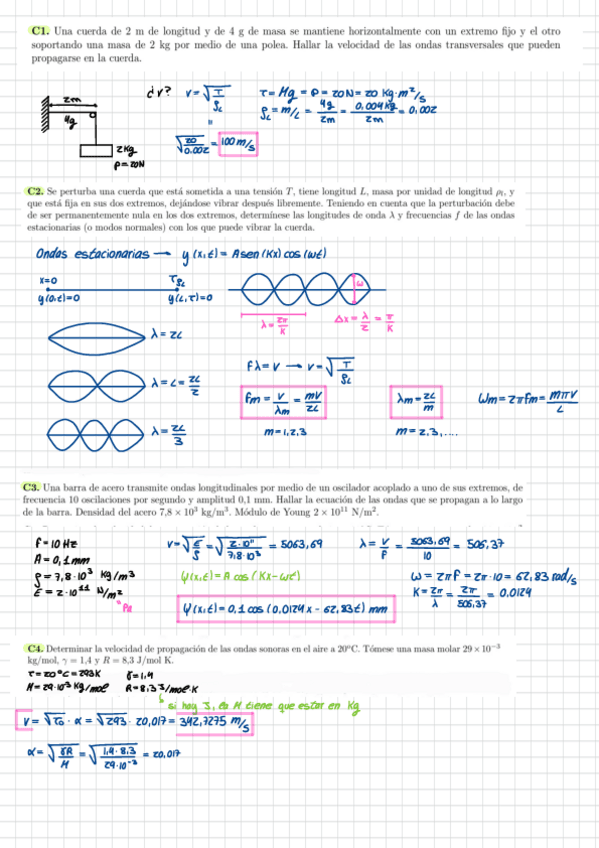 C1. Una cuerda de 2 m de longitud y de 4 g de masa se mantiene horizontalmente con un extremo fijo y el otro
soportando una masa de 2 kg por medio de una polea. Hallar la velocidad de las ondas transversales que pueden
propagarse en la cuerda.
¿v? v = √(T/ρL) T = Mg = P = 20N = 20 Kg·m²/s
ρL = m/L = 4g/2m = 0.004kg/2m = 0,002
2m
4g
√(20/0.002) = 100 m/s
2Kg
P=20N
C2. Se perturba una cuerda que está sometida a una tensión T, tiene longitud L, masa por unidad de longitud ρl, y
que está fija en sus dos extremos, dejándose vibrar después libremente. Teniendo en cuenta que la perturbación debe
de ser permanentemente nula en los dos extremos, determínese las longitudes de onda λ y frecuencias f de las ondas
estacionarias (o modos normales) con los que puede vibrar la cuerda.
Ondas estacionarias → y(x,t) = Asen(Kx)cos(ωt)
x=0
y(0,t)=0 y(L,t)=0
λ = 2π/K Δx = λ/2 = π/K
λ = 2L
fλ = v → v = √(T/ρL)
λ = L = 2L/2
fm = v/λm = mv/2L λm = 2L/m ωm = 2πfm = mπv/L
m = 1,2,3 m = 2,3,....
λ = 2L/3
C3. Una barra de acero transmite ondas longitudinales por medio de un oscilador acoplado a uno de sus extremos, de
frecuencia 10 oscilaciones por segundo y amplitud 0,1 mm. Hallar la ecuación de las ondas que se propagan a lo largo
de la barra. Densidad del acero 7,8 × 10³ kg/m³. Módulo de Young 2 × 10¹¹ N/m².
f = 10 Hz v = √(E/ρ) = √(2·10¹¹/7,8·10³) = 5063,69 λ = v/f = 5063,69/10 = 506,37
A = 0,1 mm
ρ = 7,8·10³ Kg/m³ ψ(x,t) = A cos(Kx-ωt) ω = 2πf = 2π·10 = 62,83 rad/s
E = 2·10¹¹ N/m² K = 2π/λ = 2π/506,37 = 0.0124
Pa
ψ(x,t) = 0,1 cos(0,0124x - 62,83t) mm
C4. Determinar la velocidad de propagación de las ondas sonoras en el aire a 20°C. Tómese una masa molar 29 × 10⁻³
kg/mol, γ = 1,4 y R = 8,3 J/mol K.
T = 20°C = 293K γ = 1,4
M = 29·10⁻³ Kg/mol R = 8,3 J/mol·K
si hay J, la M tiene que estar en Kg
v = √T₀ · α = √293 · 20,017 = 342,7275 m/s
α = √(γR/M) = √(1,4·8,3/29·10⁻³) = 20,017